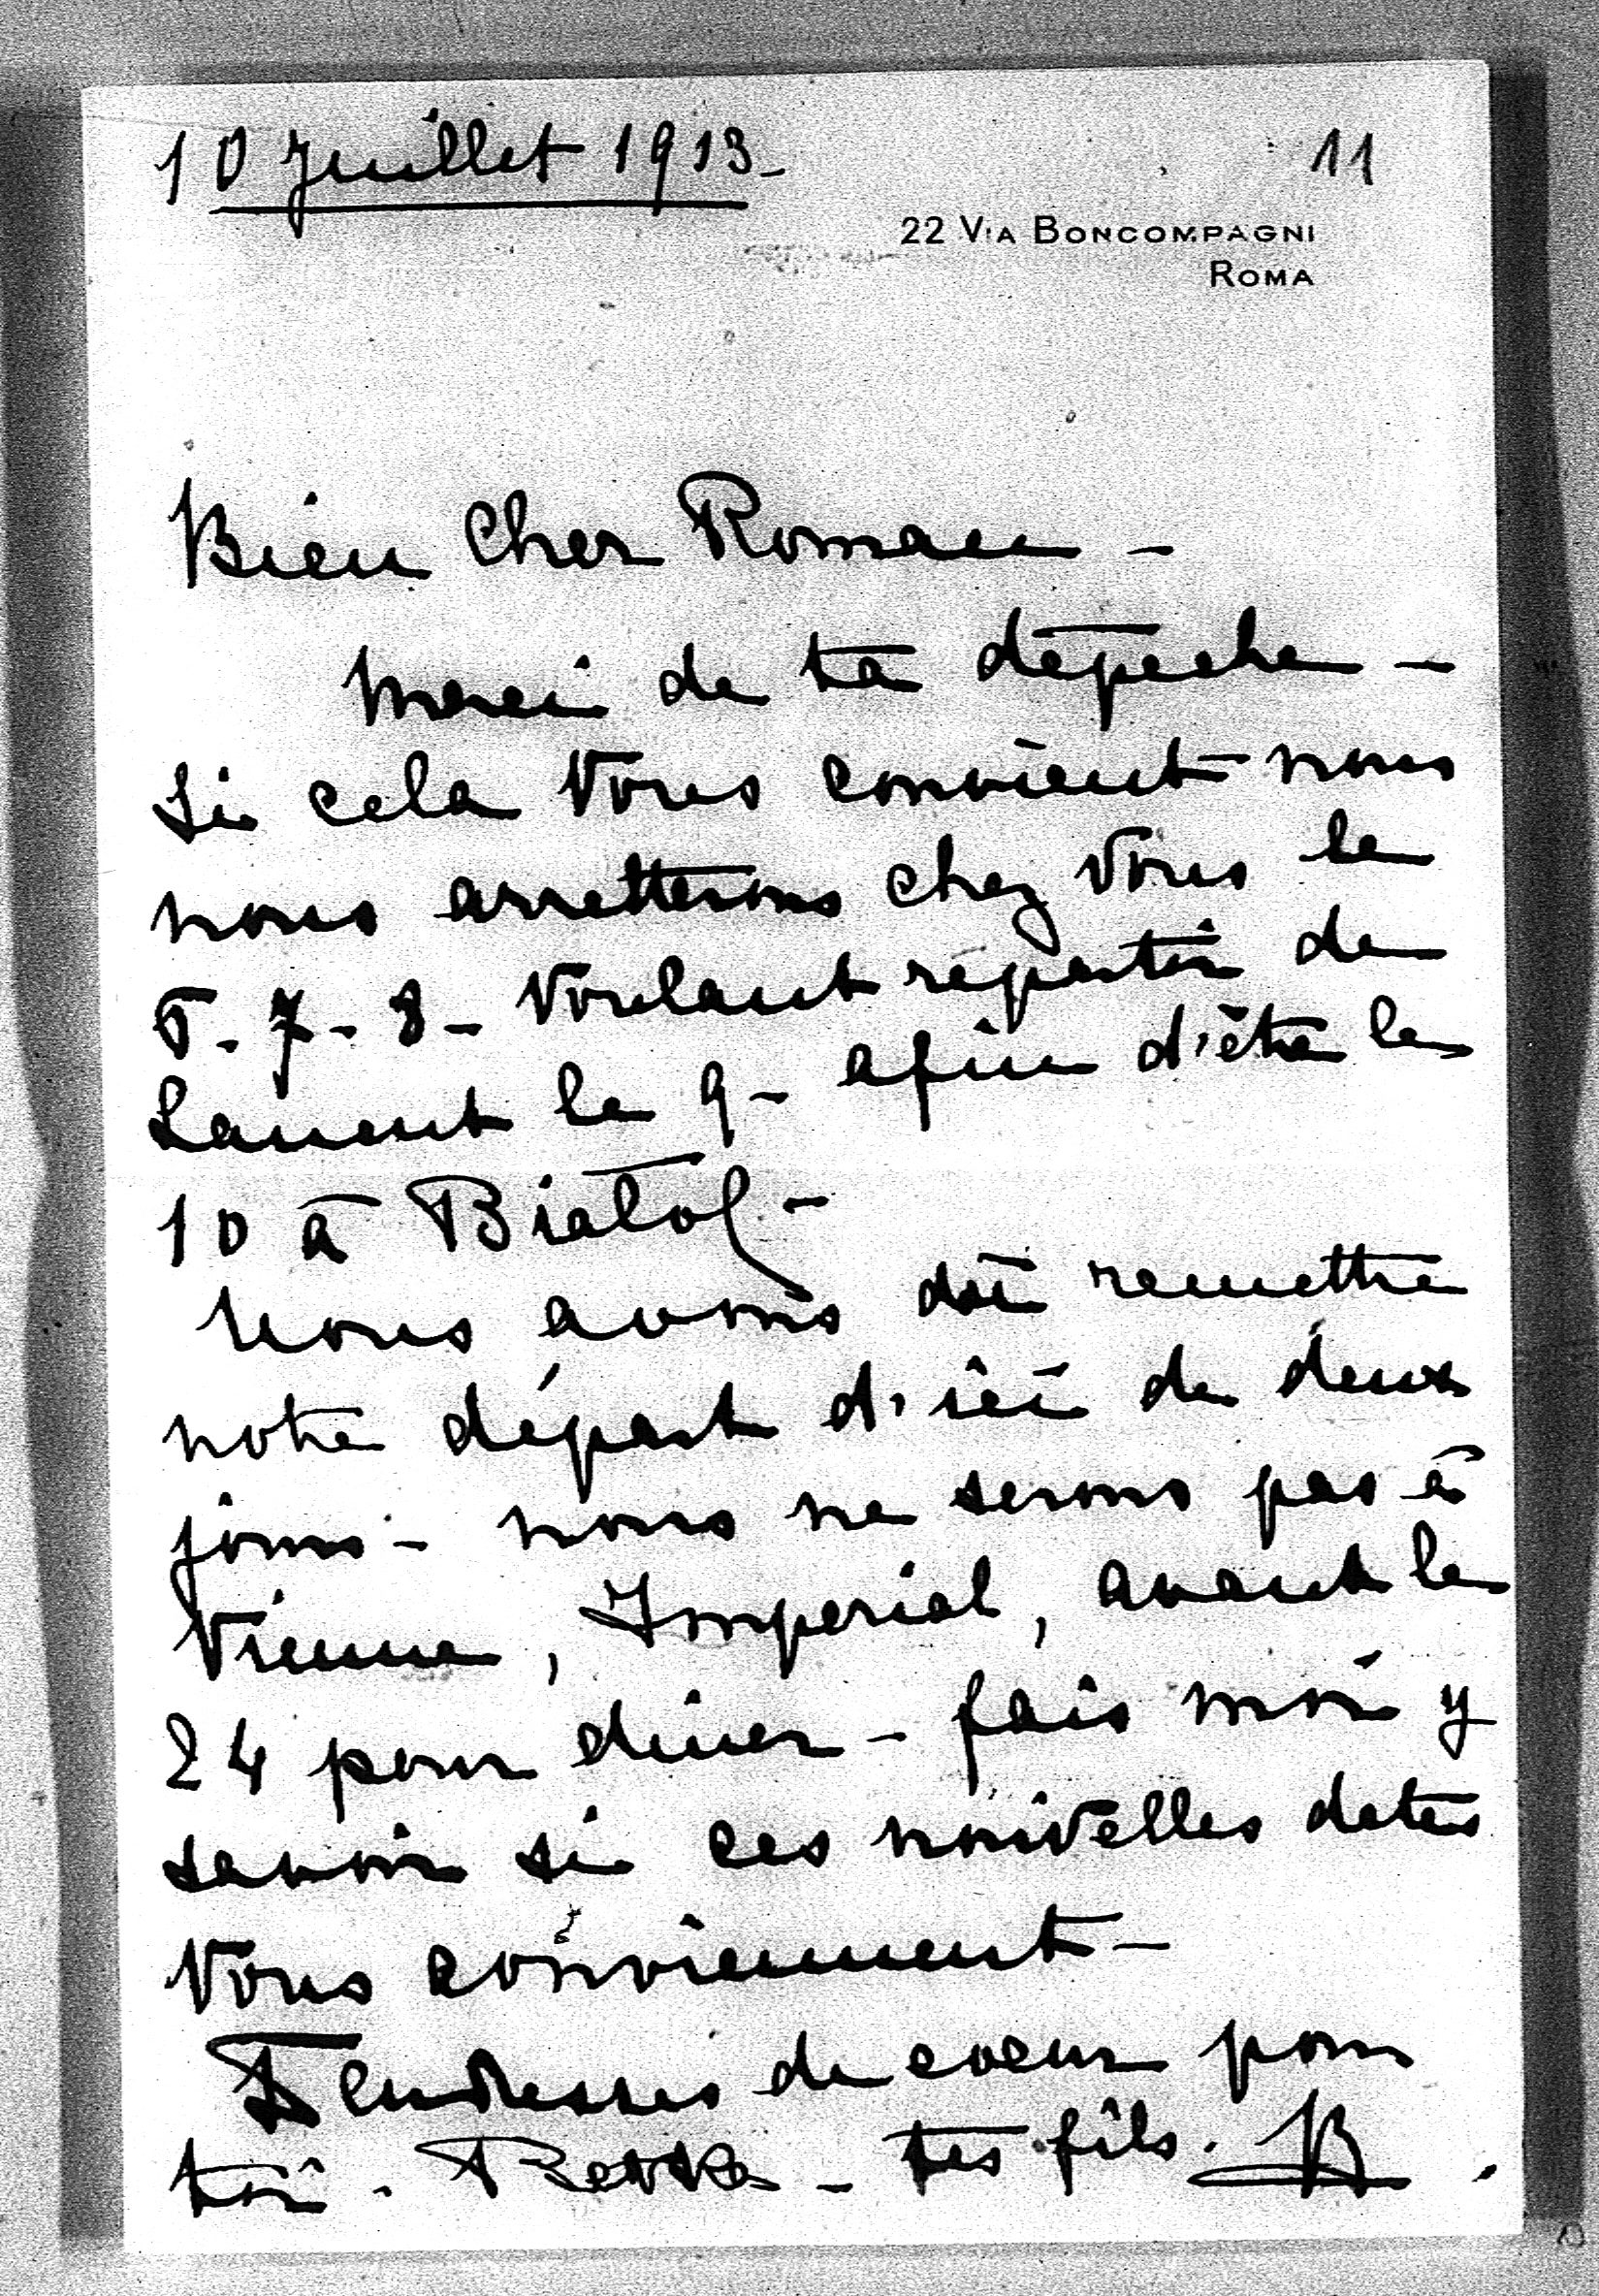 10 Juillet 1913_
11
22 VIA BONCOMPAGNI
ROMA
Bien Cher Roman –
Merci de ta dépeche –
Si cela Vous convient nous
nous arretterons chez Vous le
7 - 8 - Voulant repartir de
Lancut le 9 - afin d'être le
10 à Biala
Nous avons dû remettre
notre départ d'ici de deux
jours - nous ne serons pas à
Vienne, Imperial, avant le
24 pour diner - fais moi y
savoir si ces nouvelles dates
Vous conviennent –
Tendresses de coeur pour
toi - Betka - tes fils. B.